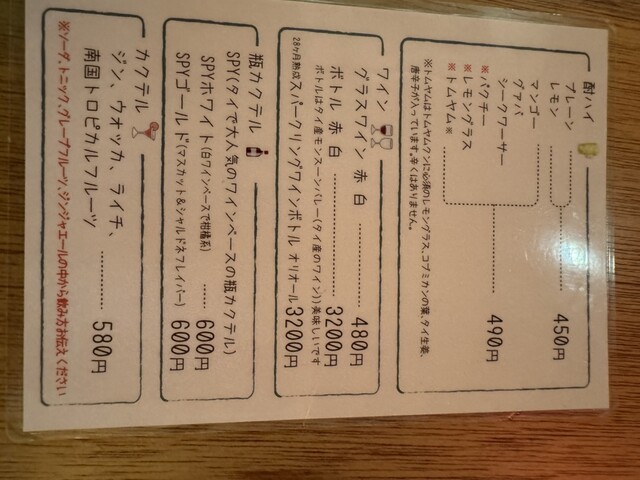 酎ハイ
プレーン
レモン 450円
マンゴー
グァバ
シークワーサー
※パクチー 490円
※レモングラス
※トムヤム※
※トムヤムはトムヤムクンに必須のレモングラス、コブミカンの葉、タイ生姜、
唐辛子が入っています。辛くはありません。
ワイン
グラスワイン 赤 白 ......... 480円
ボトル 赤 白 ............ 3200円
ボトルはタイ産モンスーンバレー(タイ産のワイン)美味しいです
28ヶ月熟成スパークリングワインボトル オリオール3200円
瓶カクテル
SPY(タイで大人気のワインベースの瓶カクテル)
SPYホワイト(白ワインベースで柑橘系) ...... 600円
SPYゴールド(マスカット&シャルドネフレイバー) 600円
カクテル
ジン、ウオッカ、ライチ、
南国トロピカルフルーツ ......... 580円
※ソーダ、トニック、グレープフルーツ、ジンジャエールの中から飲み方お伝えください